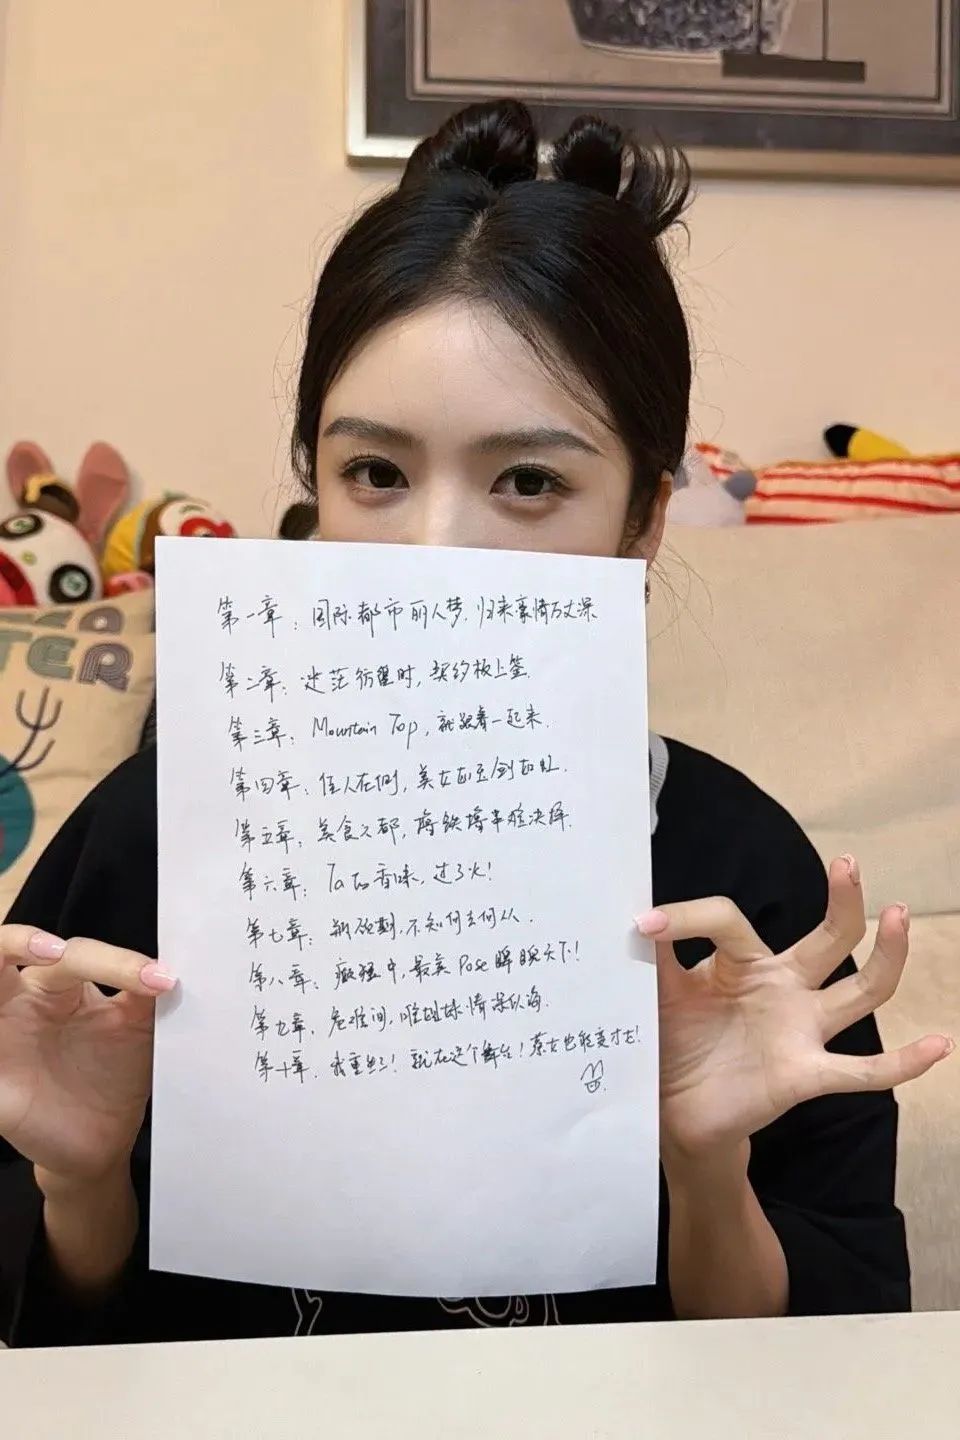 第一章：国际都市丽人梦，归来豪情万丈深
第二章：迷茫彷徨时，契约板上签.
第三章：Mountain Top，就跟着一起来.
第四章：佳人在侧，美女
第五章：美食之都，难决择.
第六章：Ta To 香味，过了火！
第七章：不知何去何从.
第八章：中，最美 Pose 睥睨天下！
第九章，危难间，唯姐妹情深似海
第十章，我重生了！就在这个舞台！蔡女也能变才女！